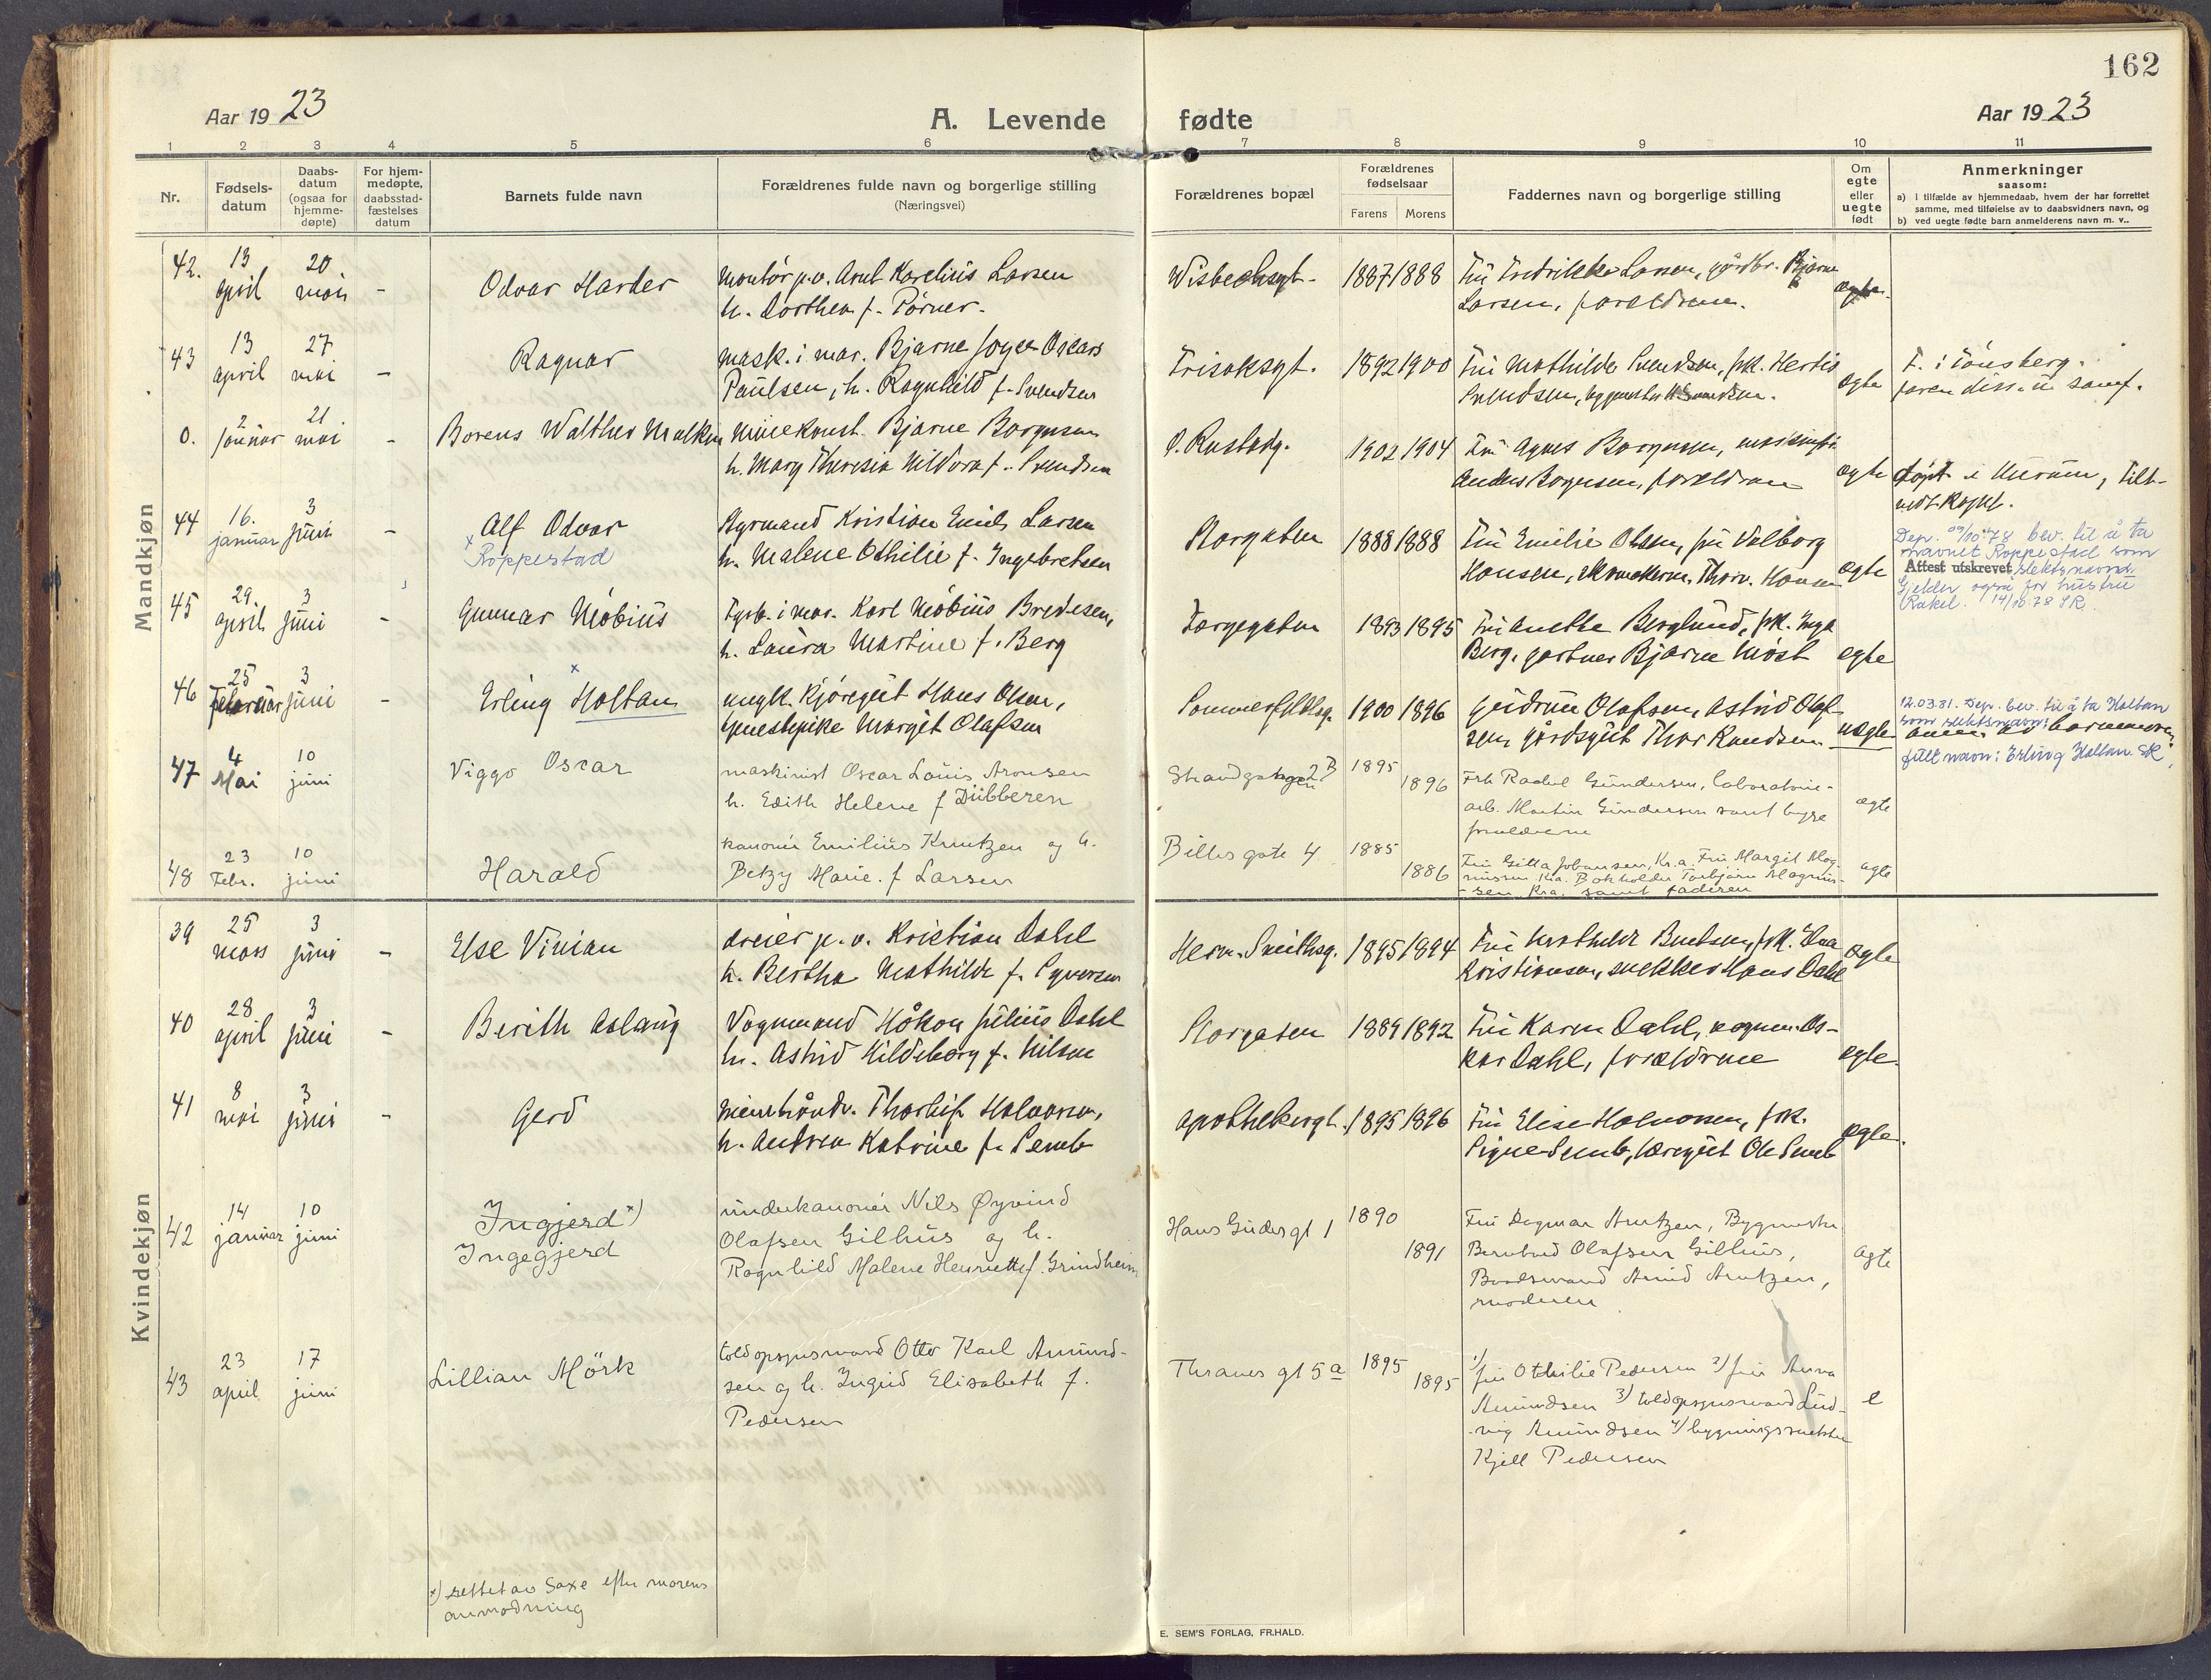 162
Aar 1923
A. Levende fødte
Aar 1923
1 2 3 4 5 6 7 8 9 10 11
Nr.
Fødsels-
datum
Daabs-
datum
(ogsaa for
hjemme-
døpte)
For hjem-
medøpte,
daabsstad-
fæstelses
datum
Barnets fulde navn
Forældrenes fulde navn og borgerlige stilling
(Næringsvei)
Forældrenes bopæl
Forældrenes
fødselsaar
Farens Morens
Faddernes navn og borgerlige stilling
Om
egte
eller
uegte
født
Anmerkninger
saasom:
a) i tilfælde av hjemmedaab, hvem der har forrettet
samme, med tilføielse av to daabsvidners navn, og
b) ved uegte fødte barn anmelderens navn m. v..
Mandkjøn
42. 13 april 20 mai - Odvar Harder
montör p.v. Arnt Karelius Larsen
h. Dorthea f. Pörner.
Wisbechsgt. 1887 1888
Fru Fredrikke Larsen, gårdbr. Bjarne
Larsen, forældrene.
egte.
43 13 april 27 mai - Ragnar
mask. i mar. Bjarne Joger Oscars
Paulsen, h. Ragnhild f. Svendsen
Frisaksgt. 1892 1900
Fru Mathilde Svendsen, frk. Herdis
Svendsen, bygmester
egte
F. i Tönsberg.
faren diss. u. samf.
0. 2 januar 21 mai - Borens Walther
Bjarne Borgersen
h. Mary Theresia Hildora f. Svendsen
O. Rustadg. 1902 1904
Fru Agnes Borgersen,
Anders Borgersen, forældrene
egte
døpt i Hurum,
44 16. januar 3 juni - Alf Odvar
x Roppestad
Styrmand Kristian Emil Larsen
h. Malene Othilie f. Ingebretsen
Storgaten 1888 1888
Fru Emilie Olsen, fru Valborg
Hansen, Thorv. Hansen
egte
Dep. 09/10.78 bev. til å ta
navnet Roppestad som
Attest utskrevet slektsnavn.
Gjelder også for hustru
Rakel. 14/10.78 SR
45 29. april 3 juni - Gunnar Möbius
Fyrb. i mar. Karl Möbius Bredesen,
h. Laura Martine f. Berg
Torgegaten 1893 1895
Fru Anette Berglund, frk. Inga
Berg, gartner Bjarne Möst
egte
46 25 Februar 3 juni - Erling x Holtan
ungk. kjöregut Hans Olsen,
tjenestepike Margit Olafsen
Sommerfeldtsg. 1900 1896
Gudrun Olafsen, Astrid Olaf-
sen, gårdsgut Thor Knudsen
uegte
12.03.81. Dep. bev. til å ta Holtan
som slektsnavn:
anm. av barnemoren
fullt navn: Erling Holtan SR.
47 4 Mai 10 juni Viggo Oscar
maskinist Oscar Louis Aronsen
h. Edith Helene f Dübberen
Strandgaten 2B 1895 1896
Frk Rachel Gundersen, laboratorie-
arb. Martin Gundersen samt begge
forældrene
egte
48 23 Febr. 10 juni Harald
kanonér Emilius Knutzen og h.
Betzy Marie. f Larsen
Billes gate 4 1885 1886
Fru Gitta Johansen, Kr.a. Fru Margit Mag-
nussen Kra. Bokholder Torbjörn Magnus-
sen Kra. samt faderen
egte
Kvindekjøn
39 25 mars 3 juni - Else Vivian
dreier p. v. Kristian Dahl
h. Bertha Mathilde f. Syversen
Herm. Smithsg. 1895 1894
Fru Mathilde Bentsen, frk. Dea
Kristiansen, snekker Hans Dahl
egte
40 28 april 3 juni - Berith Aslaug
Vognmand Håkon Julius Dahl
h. Astrid Hildeborg f. Nilsen
Storgaten 1889 1892
Fru Karen Dahl, vognm. Os-
kar Dahl, forældrene
egte.
41 8 mai 3 juni - Gerd
Thorleif Halvorsen,
h. Andrea Katrine f. Semb
Apothekergt. 1895 1896
Fru Elise Halvorsen, frk.
Signe Semb, læregut Ole Semb
egte.
42 14 januar 10 juni Ingjerd x)
Ingegjerd
underkanonér Nils Øyvind
Olafsen Gilhus og h.
Ragnhild Malene Henriette f. Grindheim
Hans Gudes gt 1 1890 1891
Fru Dagmar Arntzen, Bygmester
Bernhard Olafsen Gilhus,
Baadsmand Arvid Arntzen,
moderen
egte
43 23 april 17 juni Lillian Mörk
toldopsynsmand Otto Karl Amund-
sen og h. Ingrid Elisabeth f.
Pedersen
Thranes gt 5a 1895 1895
1) fru Othilie Pedersen 2) fru Anna
Amundsen 3) toldopsynsmand Lud-
vig Amundsen 4) bygningssnekker
Kjell Pedersen
e
x) rettet av Saxe efter morens
anmodning
E. SEM'S FORLAG, FR.HALD.